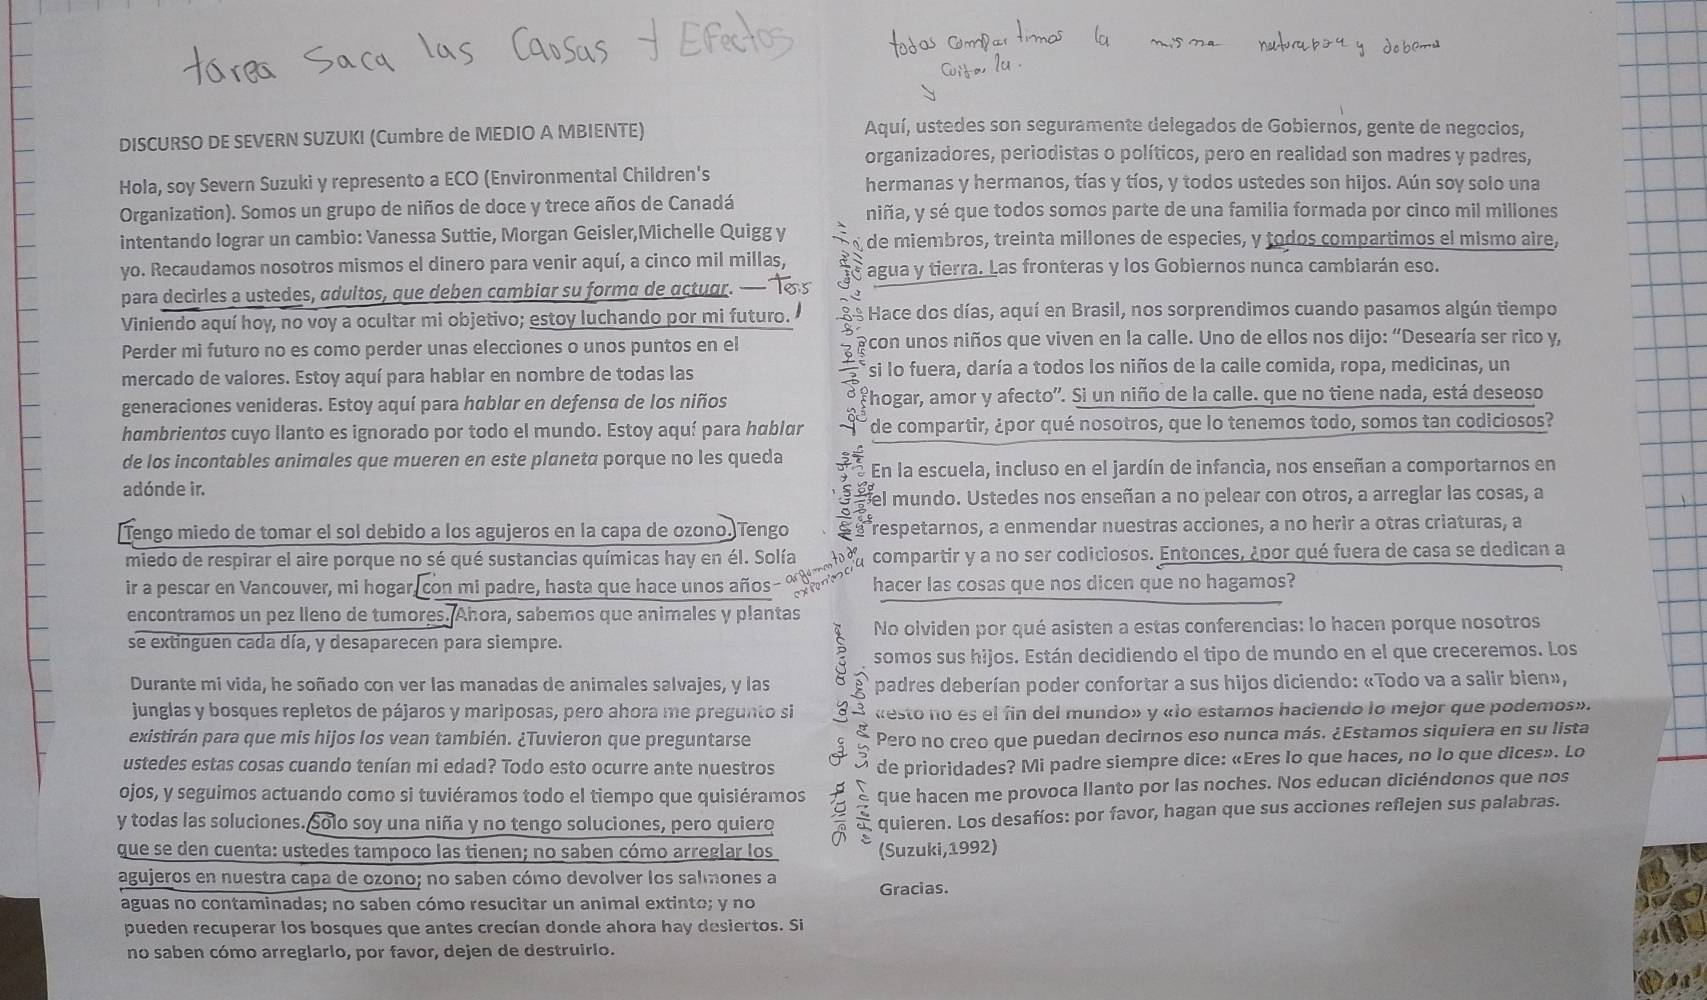 tarea Saca las Caosas y Efectos
DISCURSO DE SEVERN SUZUKI (Cumbre de MEDIO A MBIENTE)
Hola, soy Severn Suzuki y represento a ECO (Environmental Children's
Organization). Somos un grupo de niños de doce y trece años de Canadá
intentando lograr un cambio: Vanessa Suttie, Morgan Geisler,Michelle Quigg y
yo. Recaudamos nosotros mismos el dinero para venir aquí, a cinco mil millas,
para decirles a ustedes, adultos, que deben cambiar su forma de actuar. — Tesis
Viniendo aquí hoy, no voy a ocultar mi objetivo; estoy luchando por mi futuro.
Perder mi futuro no es como perder unas elecciones o unos puntos en el
mercado de valores. Estoy aquí para hablar en nombre de todas las
generaciones venideras. Estoy aquí para hablar en defensa de los niños
hambrientos cuyo llanto es ignorado por todo el mundo. Estoy aquí para hablar
de los incontables animales que mueren en este planeta porque no les queda
adónde ir.
Tengo miedo de tomar el sol debido a los agujeros en la capa de ozono. Tengo
miedo de respirar el aire porque no sé qué sustancias químicas hay en él. Solía
ir a pescar en Vancouver, mi hogar, con mi padre, hasta que hace unos años - argumento de experiencia
encontramos un pez lleno de tumores. Ahora, sabemos que animales y plantas
se extinguen cada día, y desaparecen para siempre.
Durante mi vida, he soñado con ver las manadas de animales salvajes, y las
junglas y bosques repletos de pájaros y mariposas, pero ahora me pregunto si
existirán para que mis hijos los vean también. ¿Tuvieron que preguntarse
ustedes estas cosas cuando tenían mi edad? Todo esto ocurre ante nuestros
ojos, y seguimos actuando como si tuviéramos todo el tiempo que quisiéramos
y todas las soluciones. Solo soy una niña y no tengo soluciones, pero quiero
que se den cuenta: ustedes tampoco las tienen; no saben cómo arreglar los
agujeros en nuestra capa de ozono; no saben cómo devolver los salmones a
aguas no contaminadas; no saben cómo resucitar un animal extinto; y no
pueden recuperar los bosques que antes crecían donde ahora hay desiertos. Si
no saben cómo arreglarlo, por favor, dejen de destruirlo.
todos compartimos la misma y debemos
Aquí, ustedes son seguramente delegados de Gobiernos, gente de negocios,
organizadores, periodistas o políticos, pero en realidad son madres y padres,
hermanas y hermanos, tías y tíos, y todos ustedes son hijos. Aún soy solo una
niña, y sé que todos somos parte de una familia formada por cinco mil millones
de miembros, treinta millones de especies, y todos compartimos el mismo aire,
agua y tierra. Las fronteras y los Gobiernos nunca cambiarán eso.
Los adultos deben compartir
como niños de la calle.
Hace dos días, aquí en Brasil, nos sorprendimos cuando pasamos algún tiempo
con unos niños que viven en la calle. Uno de ellos nos dijo: "Desearía ser rico y,
si lo fuera, daría a todos los niños de la calle comida, ropa, medicinas, un
hogar, amor y afecto". Si un niño de la calle. que no tiene nada, está deseoso
de compartir, ¿por qué nosotros, que lo tenemos todo, somos tan codiciosos?
En la escuela, incluso en el jardín de infancia, nos enseñan a comportarnos en
el mundo. Ustedes nos enseñan a no pelear con otros, a arreglar las cosas, a
respetarnos, a enmendar nuestras acciones, a no herir a otras criaturas, a
compartir y a no ser codiciosos. Entonces, ¿por qué fuera de casa se dedican a
hacer las cosas que nos dicen que no hagamos?
Solicita que las acciones
reflejen sus palabras.
No olviden por qué asisten a estas conferencias: lo hacen porque nosotros
somos sus hijos. Están decidiendo el tipo de mundo en el que creceremos. Los
padres deberían poder confortar a sus hijos diciendo: «Todo va a salir bien»,
«esto no es el fin del mundo» y «lo estamos haciendo lo mejor que podemos».
Pero no creo que puedan decirnos eso nunca más. ¿Estamos siquiera en su lista
de prioridades? Mi padre siempre dice: «Eres lo que haces, no lo que dices». Lo
que hacen me provoca llanto por las noches. Nos educan diciéndonos que nos
quieren. Los desafíos: por favor, hagan que sus acciones reflejen sus palabras.
(Suzuki,1992)
Gracias.